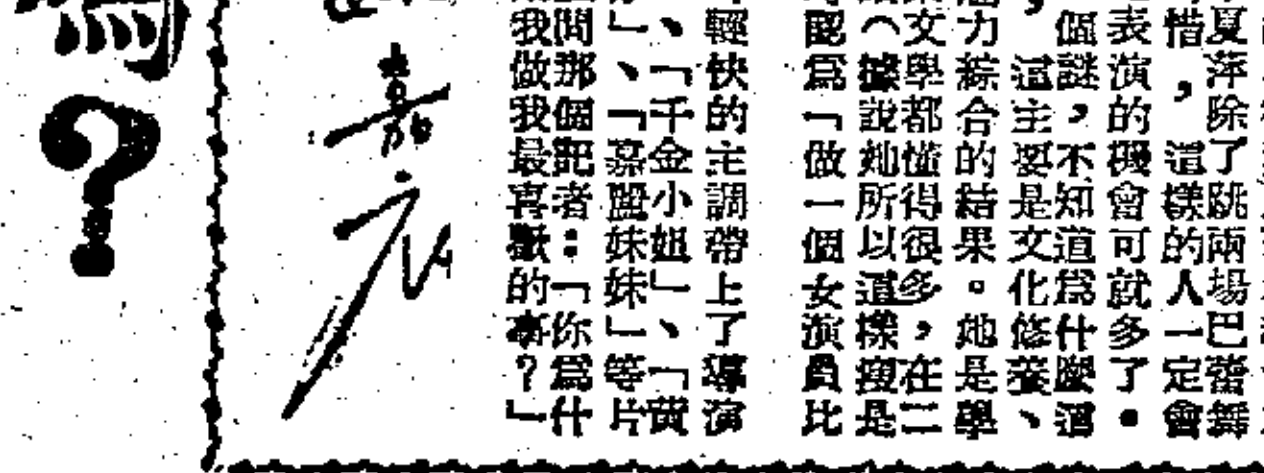 夏萍除了跳兩場巴蕾舞
惜，這樣的人一定會
表演的機會可就多了。
個謎，不知道爲什麼這
，這主要是文化修養、
力綜合的結果。她是學
文學都懂得很多，在二
（據說她所以這樣瘦是
認爲「做一個女演員比
輕快的主調帶上了導演
、「千金小姐」、「黃
」、「妹妹」等片
問那個記者：「你爲什
我做我最喜歡的事？」
嘉
？